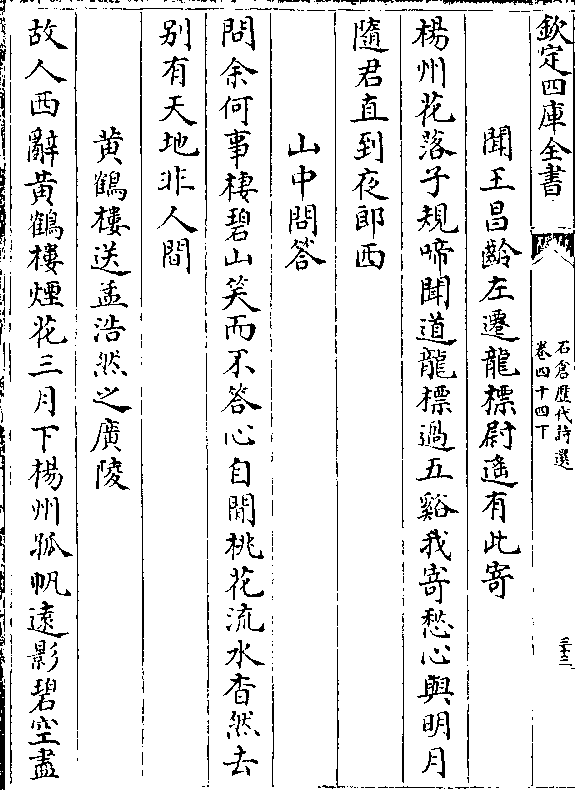 欽定四庫全書
石倉歷代詩選
卷四十四下
三十三
聞王昌齡左遷龍標尉遥有此寄
楊州花落子規啼聞道龍標過五谿我寄愁心與明月
隨君直到夜郎西
山中問答
問余何事棲碧山笑而不答心自閒桃花流水杳然去
别有天地非人間
黄鶴樓送孟浩然之廣陵
故人西辭黄鶴樓煙花三月下楊州孤帆遠影碧空盡